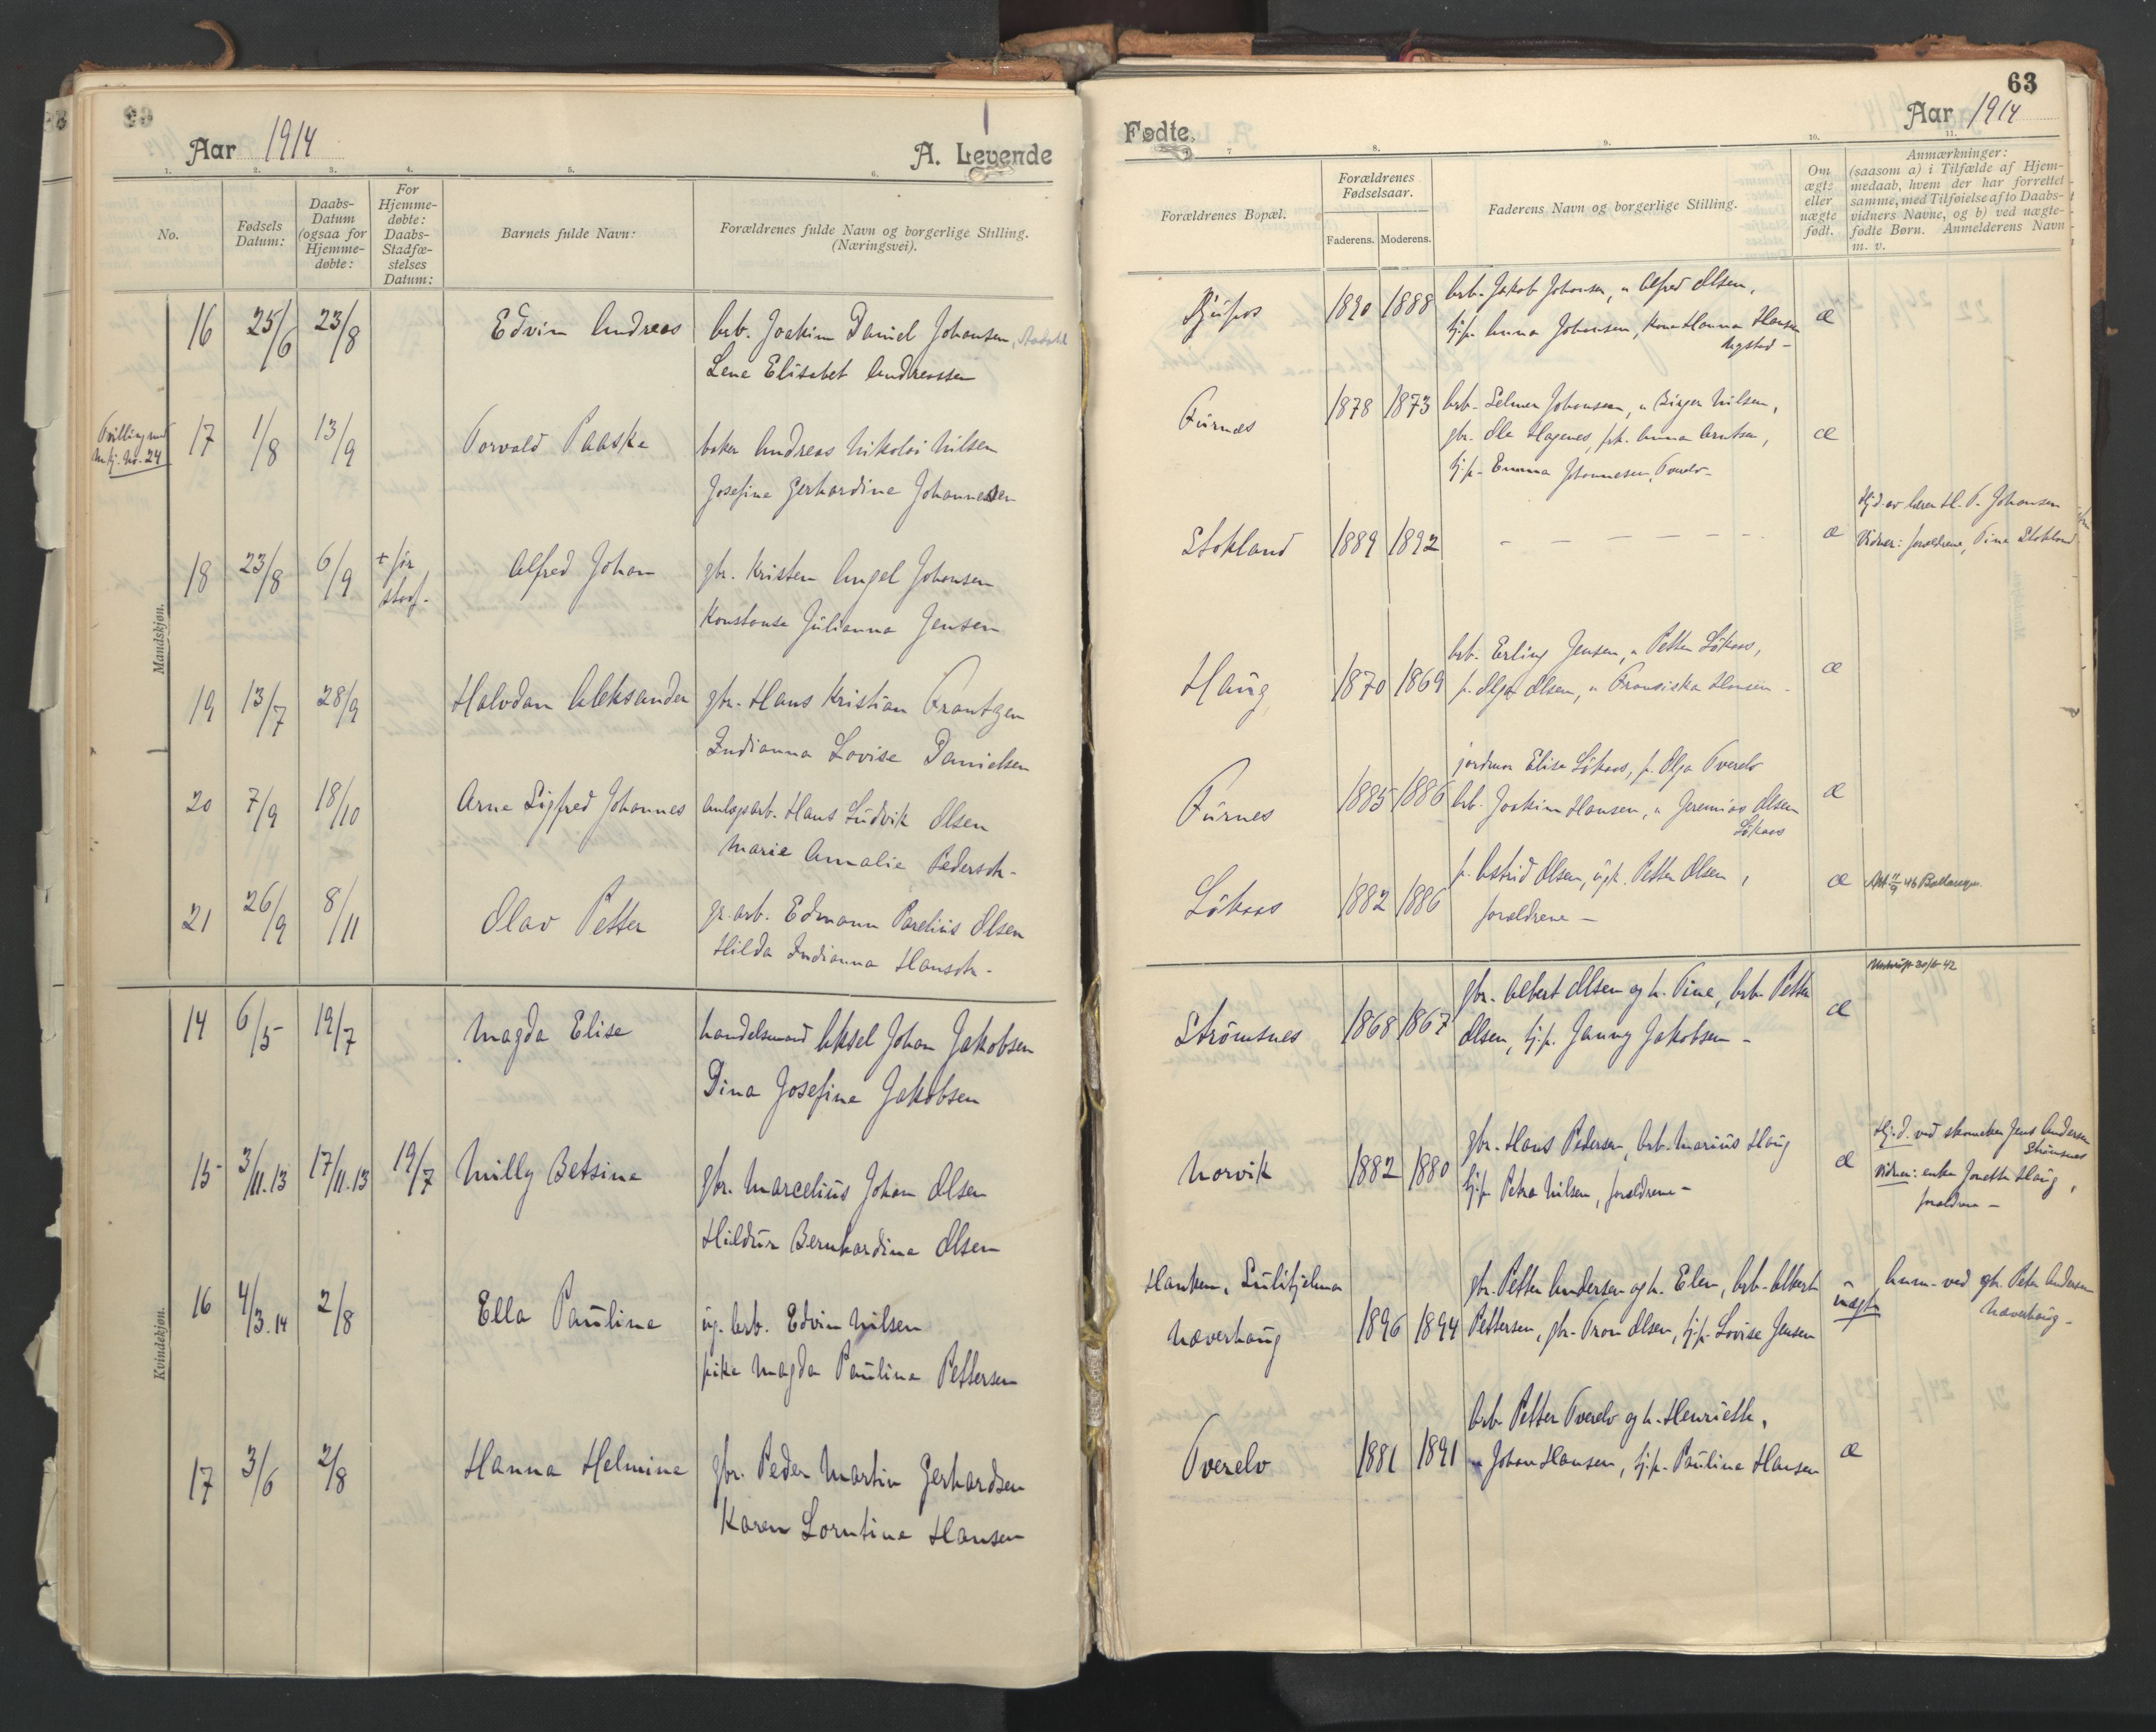 Aar 1914
A. Levende
1. 2. 3. 4. 5. 6.
No.
Fødsels
Datum:
Daabs-
Datum
(ogsaa for
Hjemme-
døbte:
For
Hjemme-
døbte:
Daabs-
Stadfæ-
stelses
Datum:
Barnets fulde Navn:
Forældrenes fulde Navn og borgerlige Stilling.
(Næringsvei).
Mandskjøn.
16 25/6 23/8 Edvin Andreas arb. Joakim Daniel Johansen,
Lene Elisabet Andreassen
Tvilling med
kvkj. No. 24
17 1/8 13/9 Torvald Paaske baker Andreas Nikolai Nilsen
Josefine Gerhardine Johannessen
18 23/8 6/9 + før
stadf.
Alfred Johan gbr. Kristen Angel Johansen
Konstanse Julianna Jensen
19 13/7 28/9 Halvdan Aleksander gbr. Hans Kristian Frantzen
Indianna Lovise Danielsen
20 7/9 18/10 Arne Sigfred Johannes anlægsarb. Hans Ludvik Olsen
Marie Amalie Pedersdtr.
21 26/9 8/11 Olav Petter gr. arb. Edmann Parelius Olsen
Hilda Indianna Hansdtr.
Kvindekjøn.
14 6/5 19/7 Magda Elise handelsmand Aksel Johan Jakobsen
Dina Josefine Jakobsen
15 3/11.13 17/11.13 19/7 Milly Betsine gbr. Marcelius Johan Olsen
Hildur Bernhardine Olsen
16 4/3.14 2/8 Ella Pauline ug. arb. Edvin Nilsen
pike Magda Pauline Pettersen
17 3/6 2/8 Hanna Helmine gbr. Peder Martin Gerhardsen
Karen Lorntine Hansen
63
Fødte.
Aar 1914
7 8. 9. 10. 11.
Forældrenes Bopæl.
Forældrenes
Fødselsaar.
Faderens. Moderens.
Faderens Navn og borgerlige Stilling.
Om
ægte
eller
uægte
født.
Anmærkninger:
(saasom a) i Tilfælde af Hjem-
medaab, hvem der har forrettet
samme, med Tilføielse af to Daabs-
vidners Navne, og b) ved uægte-
fødte Børn. Anmelderens Navn
m. v.
1890 1888 arb. Jakob Johansen, " Alfred Olsen,
tj.p. Anna Johansen, kone Hanna Hansen
æ
Furnes 1878 1873 arb. Selmer Johansen, " Birger Nilsen,
gbr. Ole Hagenes, frk. Anna Arntsen,
tj.p. Emma Johannesen, Tverelv
æ
Stokland 1889 1892 – – – – – – æ
Hj.d. av lærer H. P. Johansen
Vidner: forældrene, Tina Stokland
Haug 1870 1869 arb. Erling Jensen, " Petter Løkaas,
p. Olga Olsen, " Fransiska Hansen
æ
Furnes 1885 1886 jordmor Elise Løkaas, p. Olga Tverelv
arb. Joakim Hansen, " Jeremias Olsen
Løkaas
æ
Løkaas 1882 1886 p. Astrid Olsen, ugk. Petter Olsen,
forældrene –
æ Att. 11/9 46 Ballangen.
Utskrift 30/6-42
Strømsnes 1868 1867 gbr. Albert Olsen og h. Tine, arb. Petter
Olsen, tj.p. Janny Jakobsen –
æ
Norvik 1882 1880 gbr. Hans Pedersen, arb. Marius Haug
tj.p. Petra Nilsen, forældrene –
æ
Hj.d. ved skomaker Jens Andersen
Strømsnes
Vidner: enke Jonette Haug,
forældrene –
Hanken, Sulitjelma
Næverhaug 1896 1894 gbr. Petter Andersen og h. Elen, arb. Albert
Pettersen, gbr. Tron Olsen, tj.p. Lovise Jensen
uægte
Anm. ved gbr. Peter Andersen
Næverhaug –
Tverelv 1881 1891 arb. Petter Tverelv og h. Henriette,
" Johan Hansen, tj.p. Pauline Hansen
æ